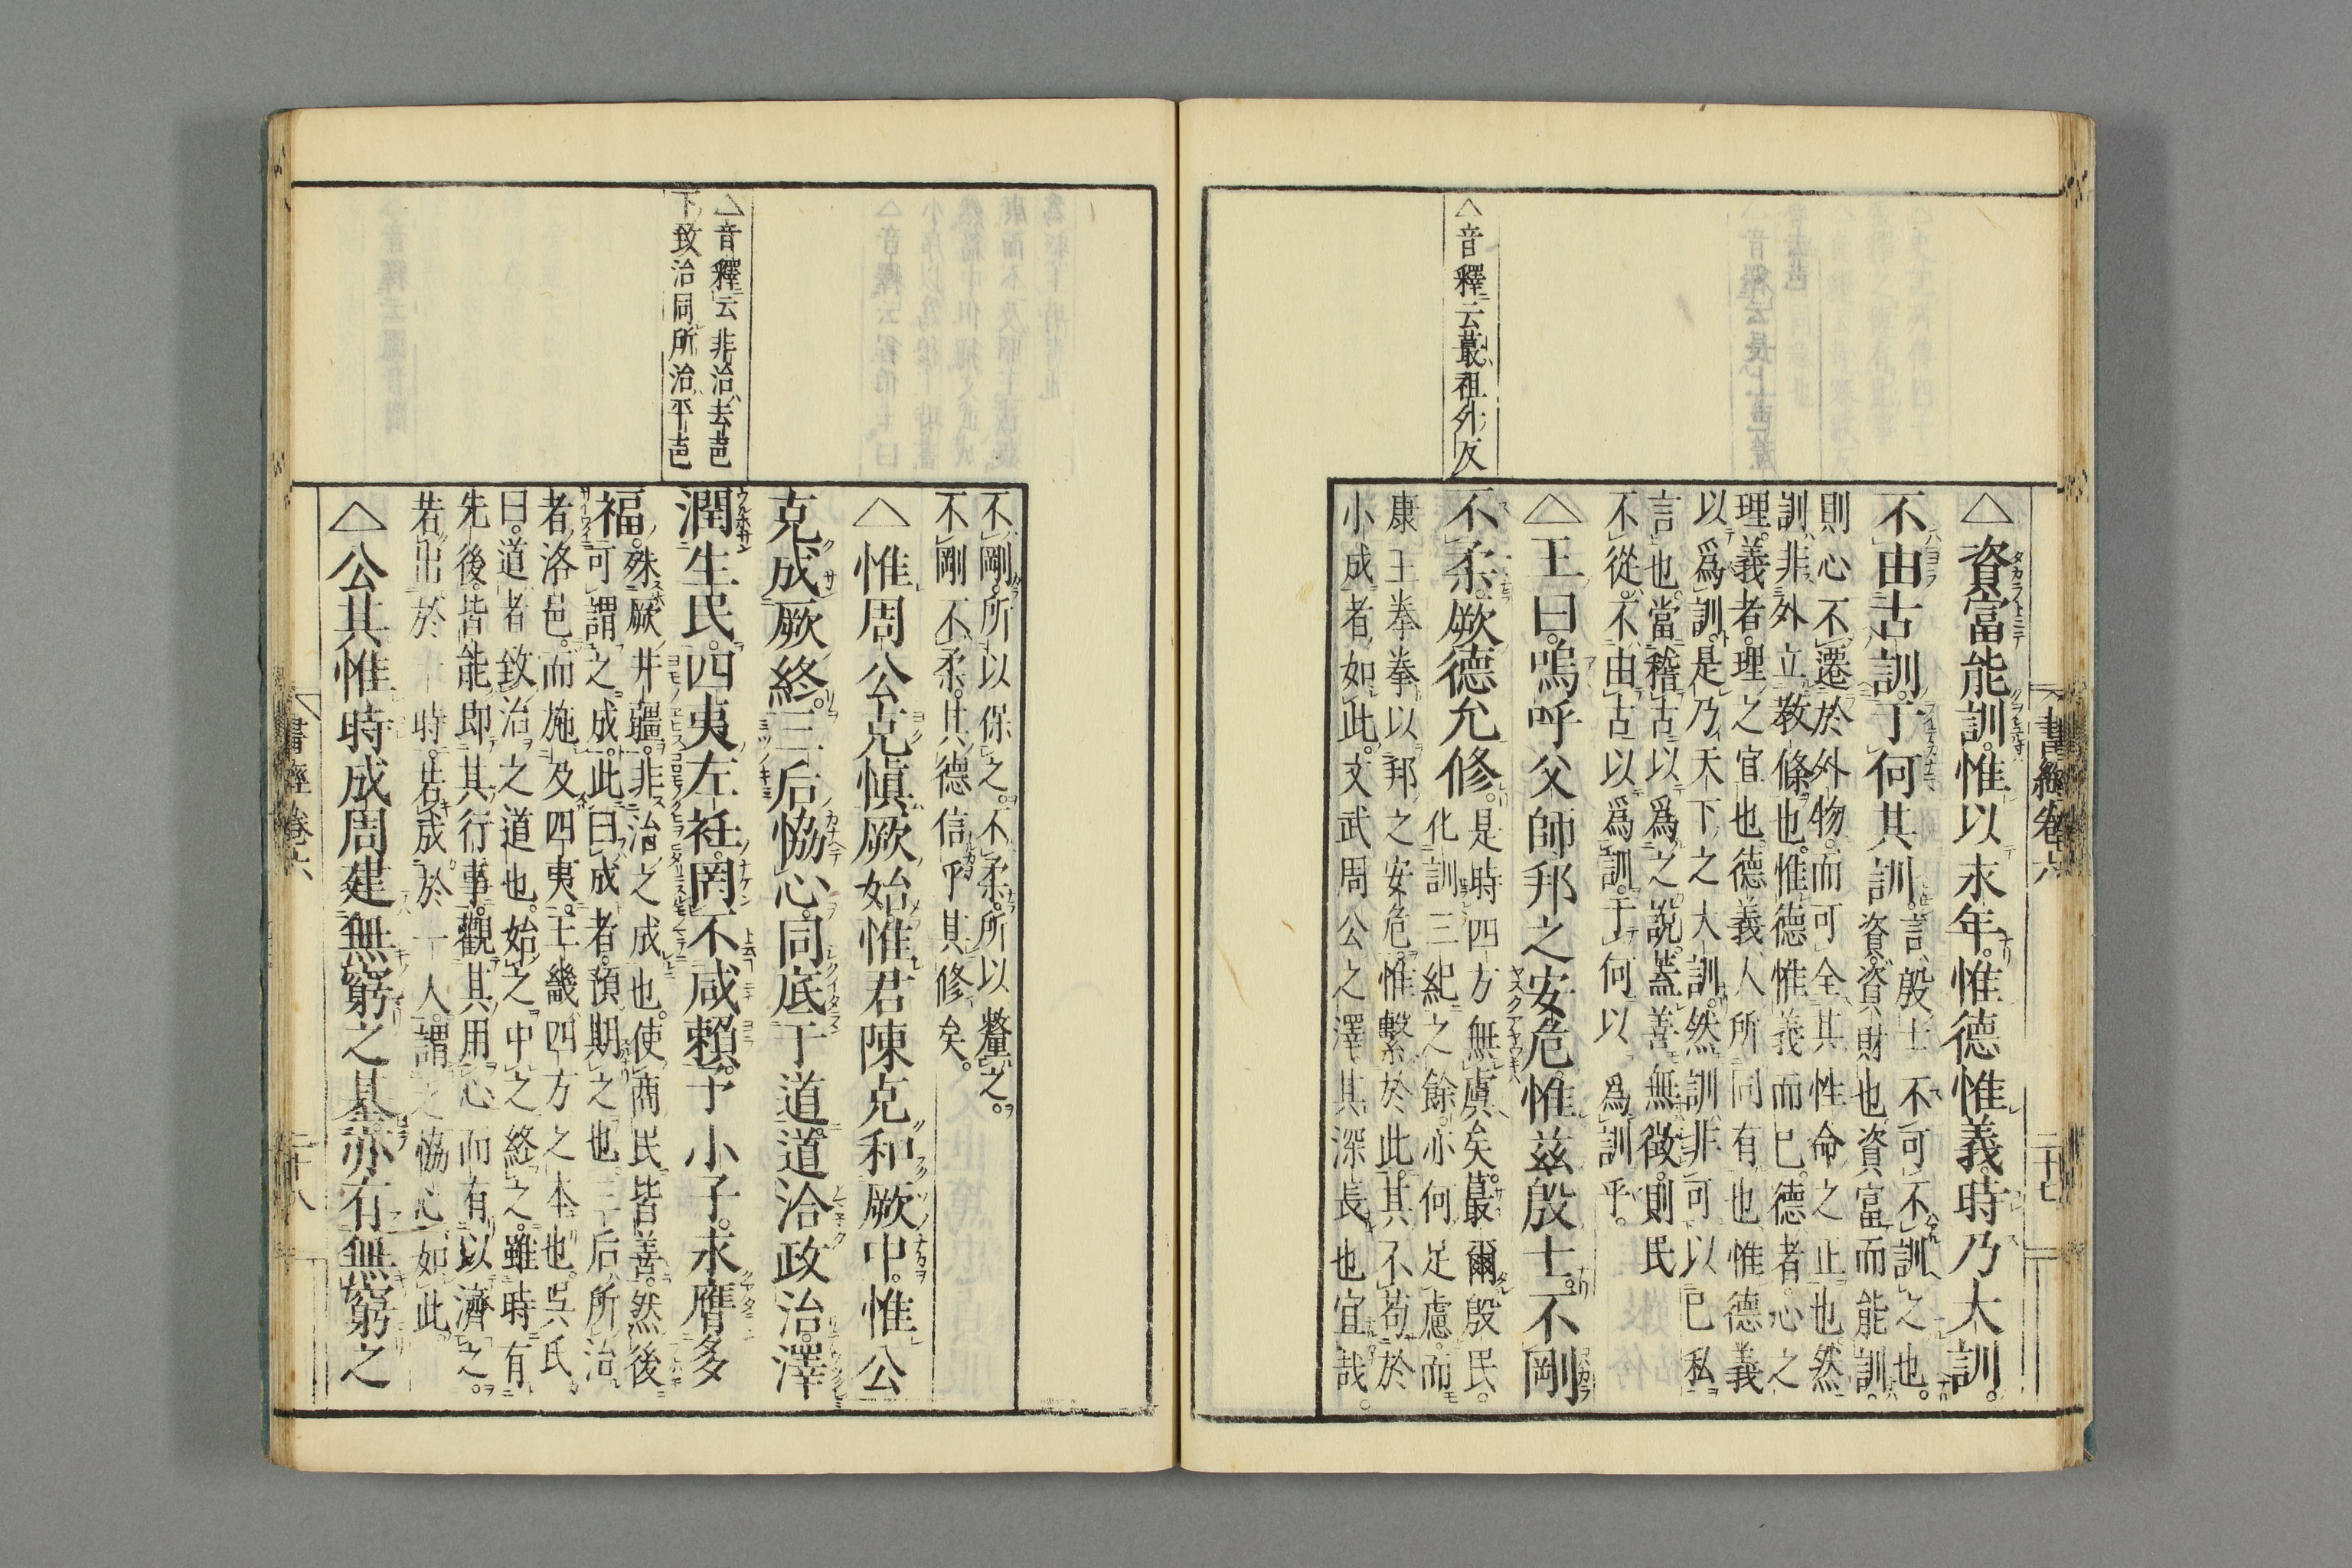 書經卷六
二十七
△音釋云蕞祖外反
△資富能訓惟以永年惟德惟義時乃大訓
不由古訓于何其訓言殷士不可不訓之也
資資財也資富而能訓
則心不遷於外物而可全其性命之正也然
訓非外立教條也惟德惟義而已德者心之
理義者理之宜也德義人所同有也惟德義
以爲訓是乃天下之大訓然訓非可以己私
言也當稽古以爲之說蓋善無徵則民
不從不由古以爲訓于何以爲訓乎
△王曰嗚呼父師邦之安危惟茲殷士不剛
不柔厥德允修是時四方無虞矣蕞爾殷民
化訓三紀之餘亦何足慮而
康王拳拳以邦之安危惟繫於此其不苟於
小成者如此文武周公之澤其深長也宜哉
△音釋云非治去聲
下致治同所治平聲
不剛所以保之不柔所以釐之
不剛不柔其德信乎其修矣
△惟周公克愼厥始惟君陳克和厥中惟公
克成厥終三后恊心同底于道道洽政治澤
潤生民四夷左衽罔不咸賴予小子永膺多
福殊厥井疆非治之成也使商民皆善然後
可謂之成此曰成者預期之也三后所治
者洛邑而施及四夷王畿四方之本也吳氏
曰道者致治之道也始之中之終之雖時有
先後皆能即其行事觀其用心而有以濟之
若出於一時若成於一人謂之恊心如此
△公其惟時成周建無窮之基亦有無窮之
書經卷六
二十八